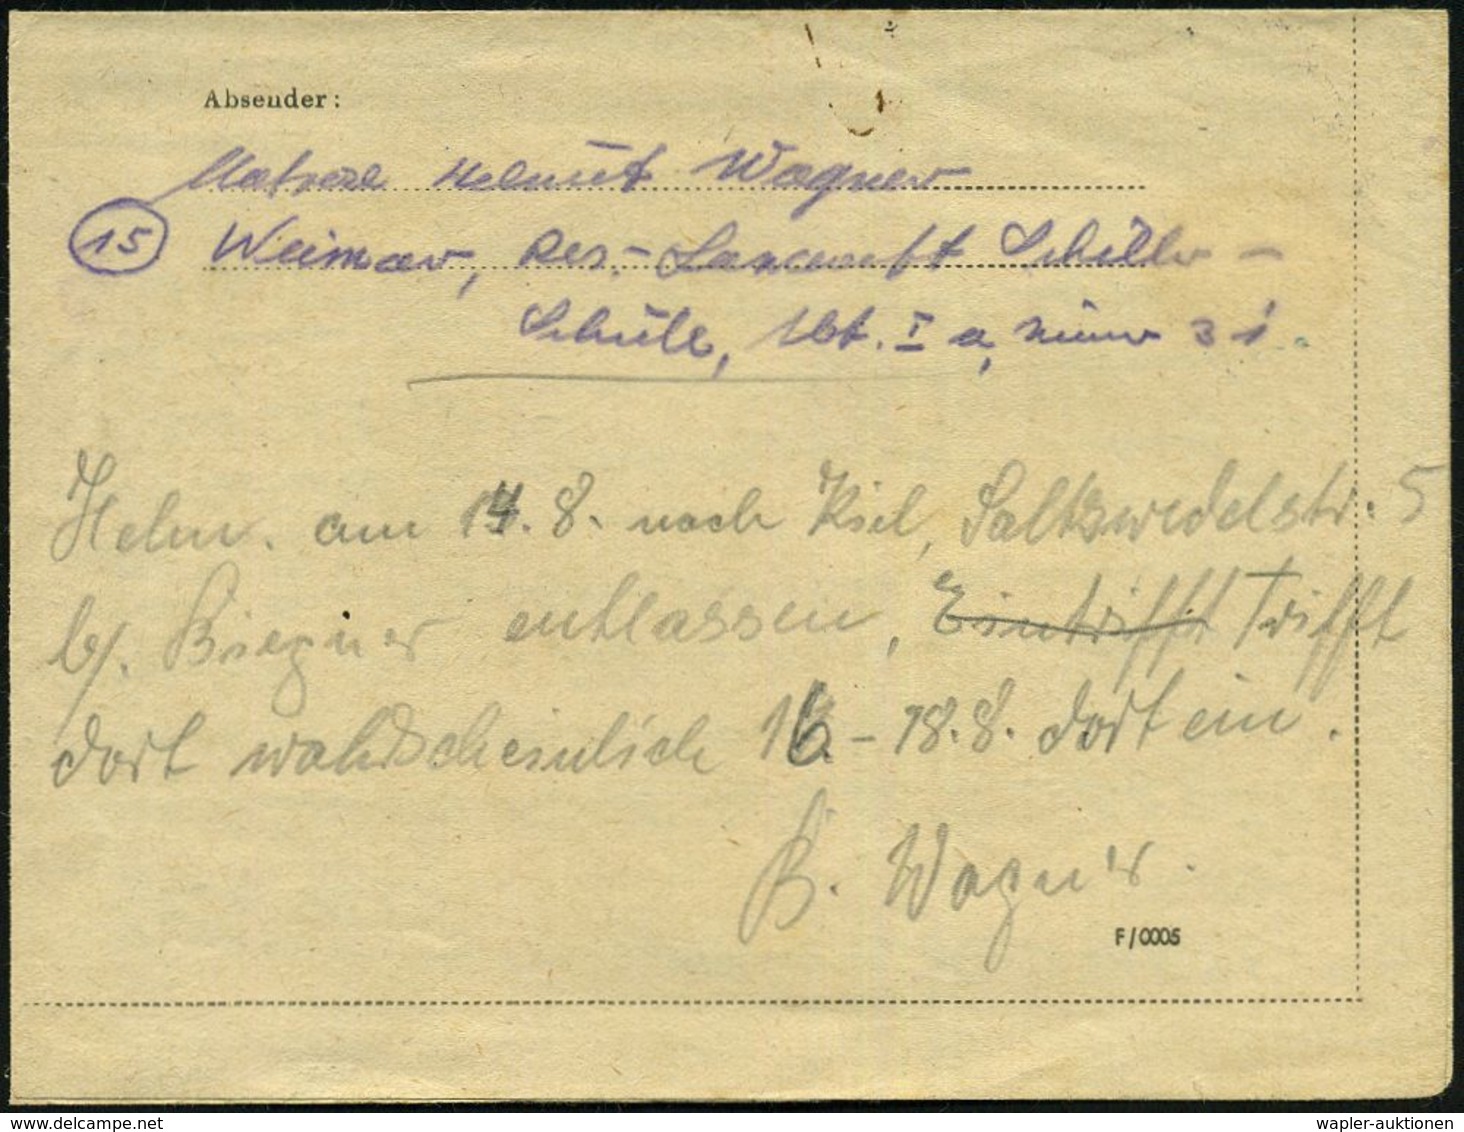 Absender:
Matrose Helmut Wagner
15 Weimar, Res.-Lazarett Schiller-
Schule, Abt. I a, 31.
Helm. am 14.8. nach Kiel, Saltzwedelstr. 5
b/. Biegner entlassen, Eintrifft Trifft
dort wahrscheinlich 16.-18.8. dort ein.
B. Wagner.
F/0005
wapler-auktionen